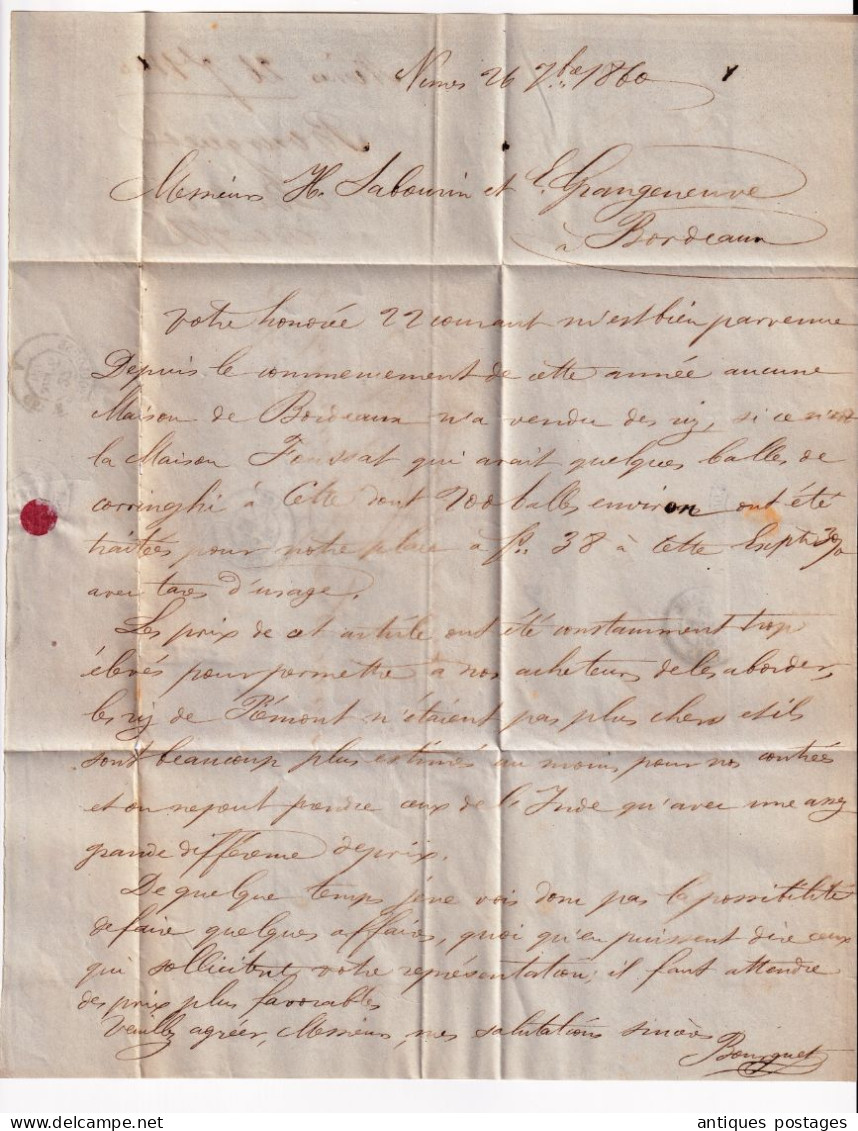 Nimes 26 7bre 1860
Messieurs H. Sabourin et E. Grangeneuve
à Bordeaux
Votre honorée 22 courant m'est bien parvenue
Depuis le commencement de cette année aucune
Maison de Bordeaux n'a vendu des riz, si ce n'est
la Maison Foussat qui avait quelques balles de
corringhi à Cette dont 700 balles environ ont été
traitées pour notre place à fr. 38 à Cette
avec tares d'usage.
Les prix de cet article ont été constamment trop
élevés pour permettre à nos acheteurs de les aborder,
les riz de Piémont n'étaient pas plus chers et ils
sont beaucoup plus estimés au moins pour nos contrées
et on ne peut prendre ceux de l'Inde qu'avec une assez
grande différence de prix.
De quelque temps je ne vois donc pas la possibilité
de faire quelques affaires, quoi qu'en puissent dire ceux
qui sollicitent votre représentation; il faut attendre
des prix plus favorables
Veuillez agréer, Messieurs, mes salutations sincères
Bourguet
antiques postages